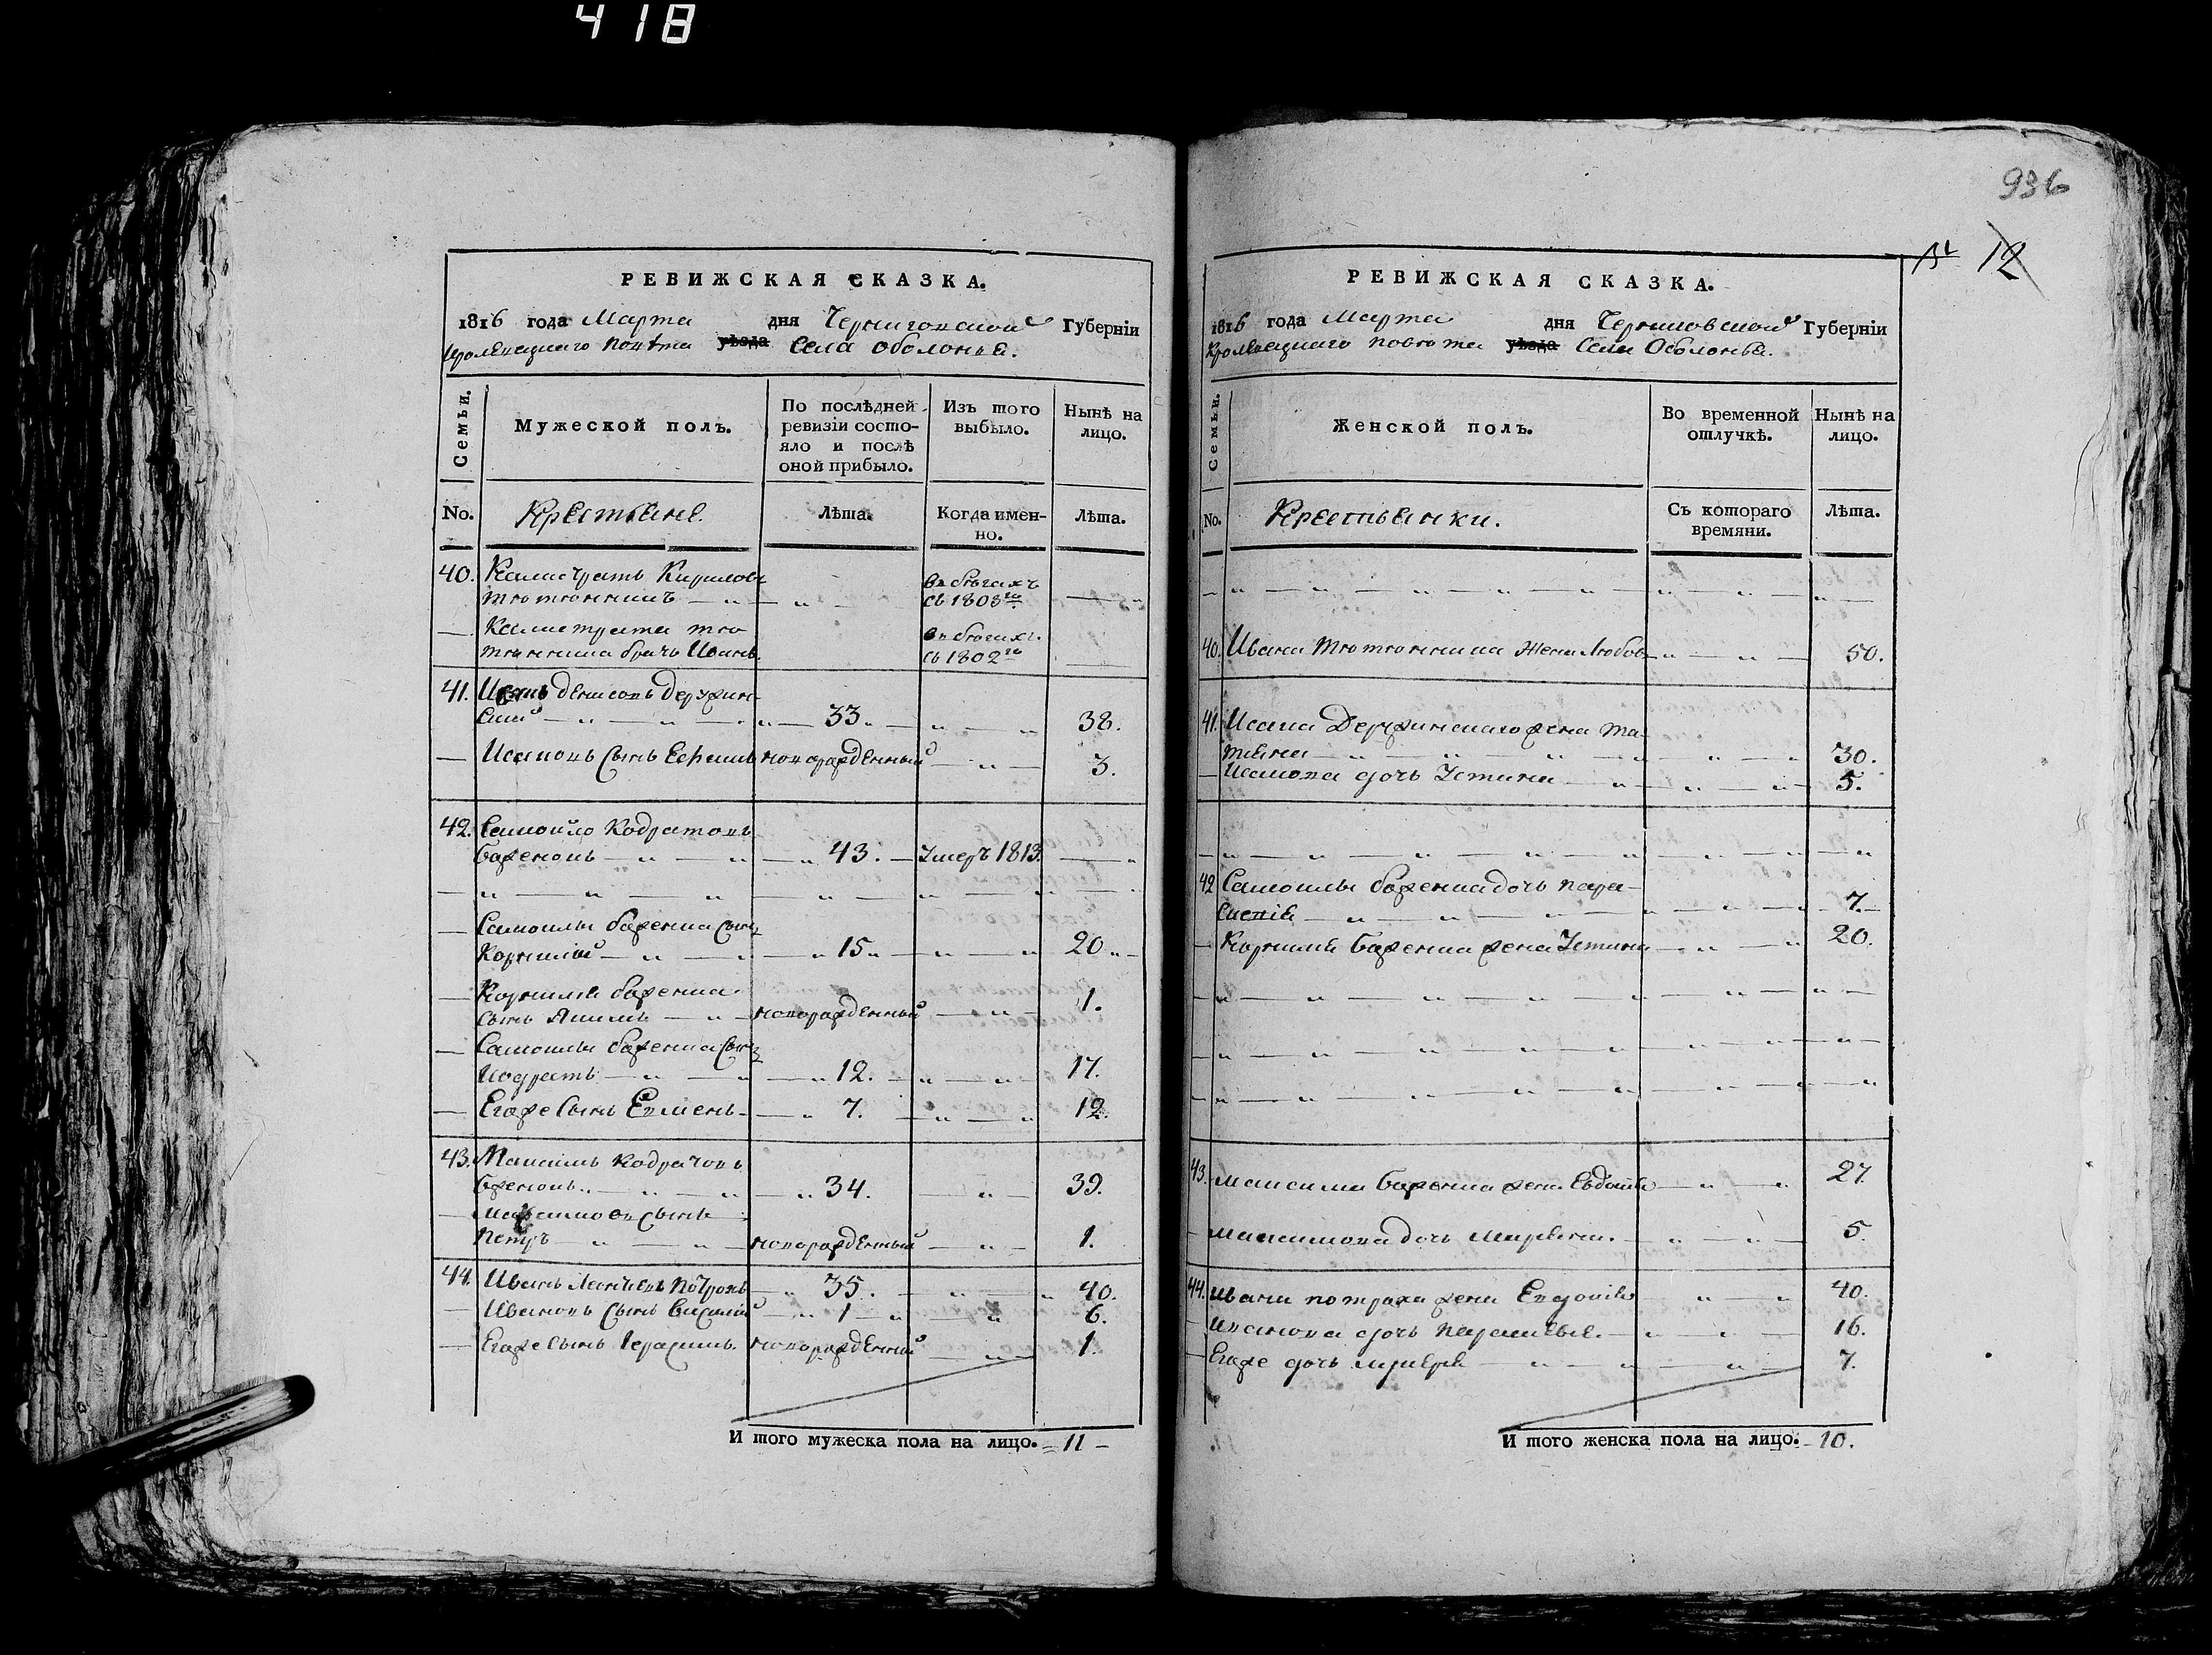 418
936
12
РЕВИЖСКАЯ СКАЗКА.
1816 года Марта дня Черниговской Губерніи
Кролевецкаго повѣта уѣзда Села Оболонья.
Семьи.
Мужеской полъ.
По послѣдней ревизіи состо-
яло и послѣ
оной прибыло.
Изъ того
выбыло.
Нынѣ на
лицо.
No.
Крестьяне.
Лѣта.
Когда имен-
но.
Лѣта.
40. Калистратъ Кириловъ
Тютюнникъ
въ бѣгахъ
съ 1803го
Калистрата Тю-
тюнника братъ Иванъ.
въ бѣгахъ
съ 1802го
41. Исакъ Денисовъ Держин-
ский 33. 38.
Исаковъ сынъ Ефимъ новорожденный 3.
42. Самойло Кодратовъ
Боженокъ 43. Умеръ 1813.
Самойлы Боженка сынъ
Корнилій 15 20
Корнилія Боженка
сынъ Якимъ новорожденный 1.
Самойлы Боженка сынъ
Кодратъ 12. 17.
Егоже сынъ Евмень 7. 12.
43. Максимъ Кодратовъ
Боженокъ 34. 39.
Максимовъ сынъ
Петръ новорожденный 1.
44. Иванъ Леонтіевъ Потрохъ 35. 40.
Ивановъ сынъ Василій 1 6.
Егоже сынъ Герасимъ новорожденный 1.
И того мужеска пола на лицо. 11
РЕВИЖСКАЯ СКАЗКА.
1816 года Марта дня Черниговской Губерніи
Кролевецкаго повѣта уѣзда Села Оболонья.
Семьи.
Женской полъ.
Во временной
отлучкѣ.
Нынѣ на
лицо.
No.
Крестьянки.
Съ котораго
времяни.
Лѣта.
40. Ивана Тютюнника жена Любовь 50.
41. Исака Держинскаго жена Та-
тіяна 30.
Исакова дочь Устина 5.
42 Самойлы Боженка дочь Пара-
скевія 7.
Корнилія Боженка жена Устина 20.
43. Максима Боженка жена Евдокія 27.
Максимова дочь 5.
44. Ивана Потроха жена Евдокія 40.
Иванова дочь 16.
Егоже дочь 7.
И того женска пола на лицо. 10.